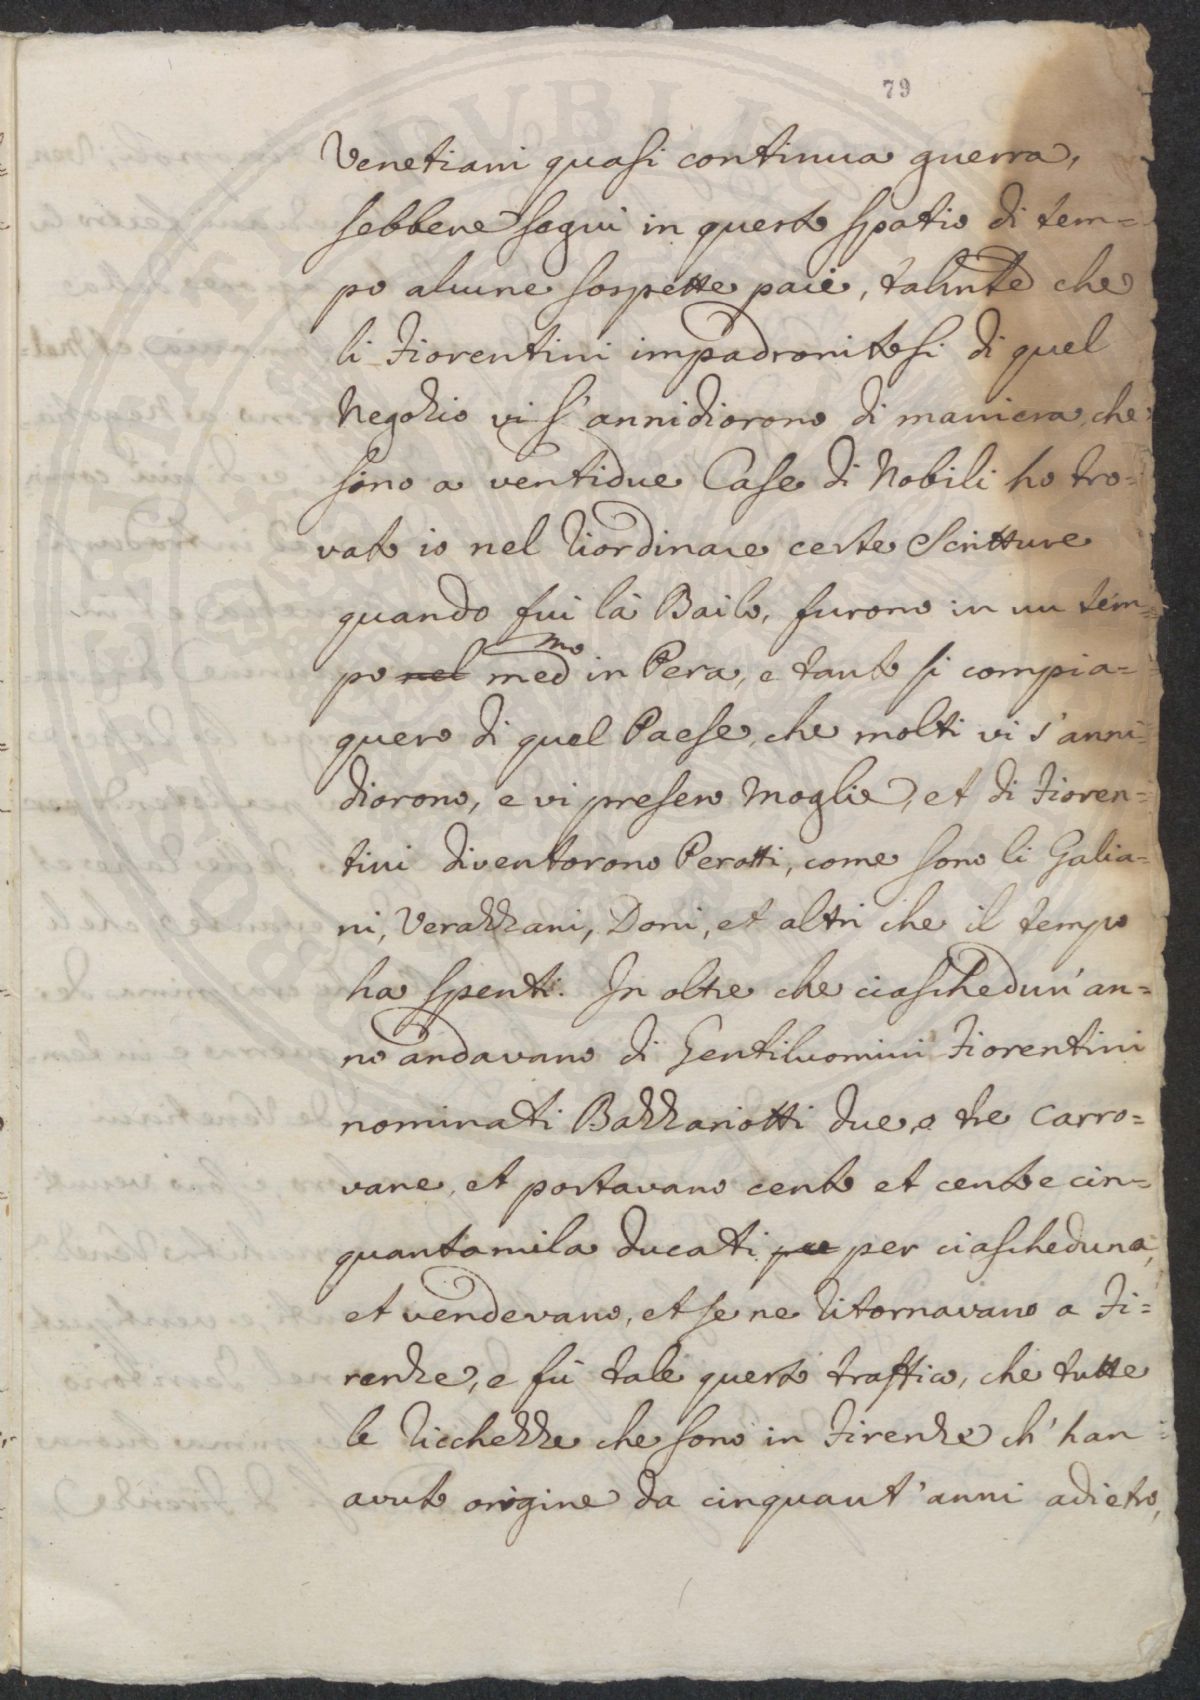 79
Venetiani quasi continua guerra,
sebbene seguì in questo spatio di tem=
po alcune sospette pace, talmte che
li Fiorentini impadronitosi di quel
Negozio vi s'annidiorono di maniera, che
sino a ventidue Case di Nobili ho tro=
vato io nel riordinare certe Scritture
quando fui là Bailo, furono in un tem=
po nel medmo in Pera, e tanto si compia=
quero di quel Paese, che molti vi s'anni=
diorono, e vi presero Moglie, et di Fioren=
tini diventorono Perotti, come sono li Galia=
ni, Verazzani, Doni, et altri che il tempo
ha spenti. In oltre che ciaschedun'an=
no andavano di Gentiluomini Fiorentini
nominati Bazzariotti due, o tre Carro=
vane, et portavano cento et cento e cin=
quantamila ducati per ciascheduna,
et vendevano, et se ne ritornavano a Fi=
renze, e fù tale questo traffico, che tutte
le ricchezze che sono in Firenze ch'han
avuto origine da cinquant'anni adietro,